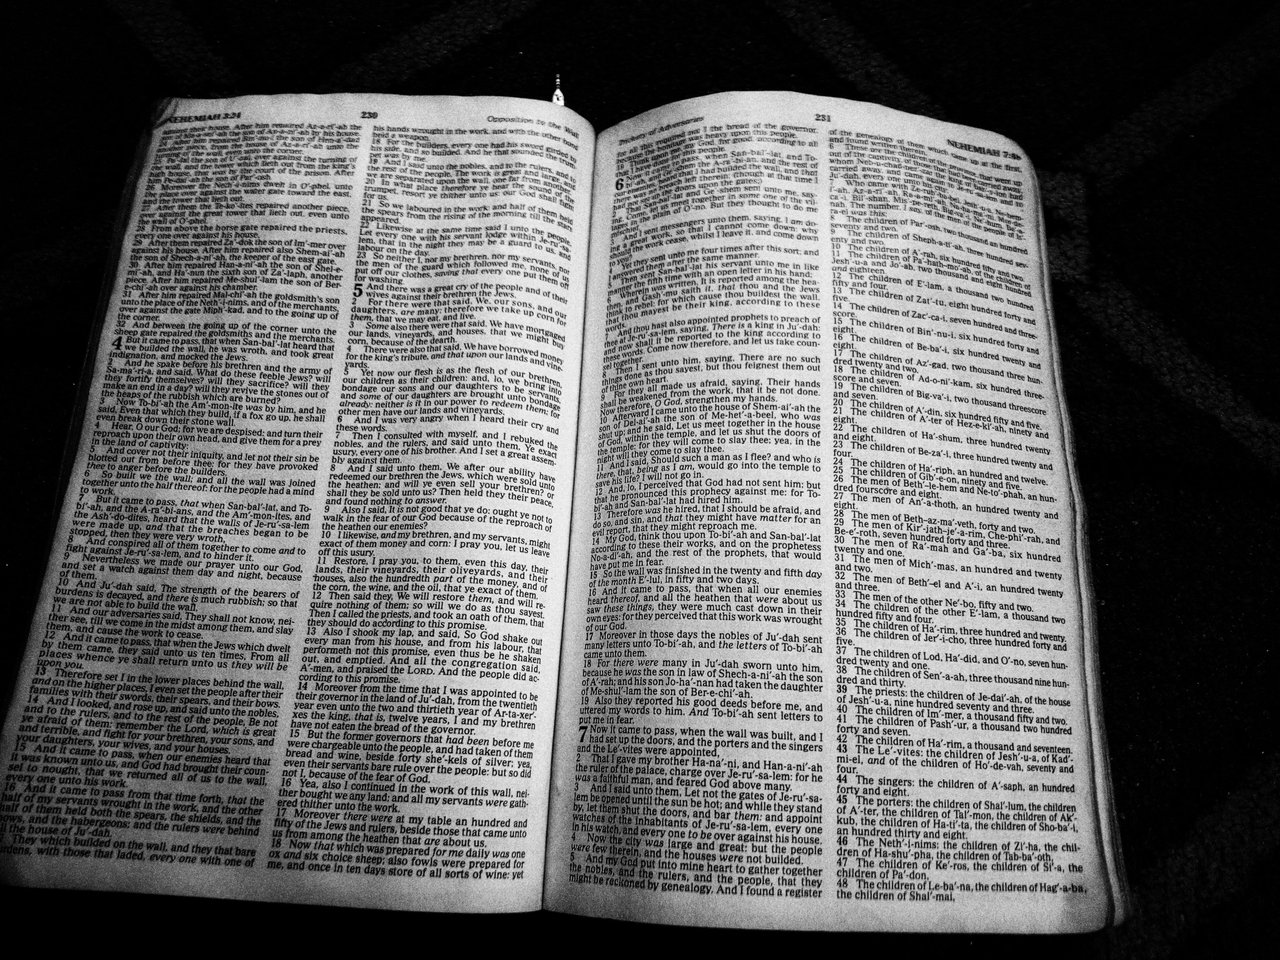 NEHEMIAH 3:24
230
Opposition to the Wall
among their house. After him repaired Az-a-ri'-ah the
26 Moreover the Neth'-i-nims dwelt in O'-phel, unto
the place over against the water gate toward the east,
and the tower that lieth out.
27 After them the Te-ko'-ites repaired another piece,
over against the great tower that lieth out, even unto
the wall of O'-phel.
28 From above the horse gate repaired the priests,
every one over against his house.
29 After them repaired Za'-dok the son of Im'-mer over
against his house. After him repaired also Shem-ai'-ah
the son of Shech-a-ni'-ah, the keeper of the east gate.
30 After him repaired Han-a-ni'-ah the son of Shel-e-
mi'-ah, and Ha'-nun the sixth son of Za'-laph, another
piece. After him repaired Me-shul'-lam the son of Ber-
e-chi'-ah over against his chamber.
31 After him repaired Mal-chi'-ah the goldsmith's son
unto the place of the Neth'-i-nims, and of the merchants,
over against the gate Miph'-kad, and to the going up of
the corner.
32 And between the going up of the corner unto the
sheep gate repaired the goldsmiths and the merchants.
4 But it came to pass, that when San-bal'-lat heard that
we builded the wall, he was wroth, and took great
indignation, and mocked the Jews.
2 And he spake before his brethren and the army of
Sa-ma'-ri-a, and said, What do these feeble Jews? will
they fortify themselves? will they sacrifice? will they
make an end in a day? will they revive the stones out of
the heaps of the rubbish which are burned?
3 Now To-bi'-ah the Am'-mon-ite was by him, and he
said, Even that which they build, if a fox go up, he shall
even break down their stone wall.
4 Hear, O our God; for we are despised: and turn their
reproach upon their own head, and give them for a prey
in the land of captivity:
5 And cover not their iniquity, and let not their sin be
blotted out from before thee: for they have provoked
thee to anger before the builders.
6 So built we the wall; and all the wall was joined
together unto the half thereof: for the people had a mind
to work.
7 But it came to pass, that when San-bal'-lat, and To-
bi'-ah, and the A-ra'-bi-ans, and the Am'-mon-ites, and
the Ash'-dod-ites, heard that the walls of Je-ru'-sa-lem
were made up, and that the breaches began to be
stopped, then they were very wroth,
8 And conspired all of them together to come and to
fight against Je-ru'-sa-lem, and to hinder it.
9 Nevertheless we made our prayer unto our God,
and set a watch against them day and night, because
of them.
10 And Ju'-dah said, The strength of the bearers of
burdens is decayed, and there is much rubbish; so that
we are not able to build the wall.
11 And our adversaries said, They shall not know, nei-
ther see, till we come in the midst among them, and slay
them, and cause the work to cease.
12 And it came to pass, that when the Jews which dwelt
by them came, they said unto us ten times, From all
places whence ye shall return unto us they will be
upon you.
13 Therefore set I in the lower places behind the wall,
and on the higher places, I even set the people after their
families with their swords, their spears, and their bows.
14 And I looked, and rose up, and said unto the nobles,
and to the rulers, and to the rest of the people, Be not
ye afraid of them: remember the Lord, which is great
and terrible, and fight for your brethren, your sons, and
your daughters, your wives, and your houses.
15 And it came to pass, when our enemies heard that
it was known unto us, and God had brought their coun
sel to nought, that we returned all of us to the wall,
every one unto his work.
16 And it came to pass from that time forth, that the
half of my servants wrought in the work, and the other
half of them held both the spears, the shields, and the
bows, and the habergeons; and the rulers were behind
all the house of Ju'-dah.
17 They which builded on the wall, and they that bare
burdens, with those that laded, every one with one of
his hands wrought in the work, and with the other hand
held a weapon.
18 For the builders, every one had his sword girded by
his side, and so builded. And he that sounded the trum-
pet was by me.
19 And I said unto the nobles, and to the rulers, and to
the rest of the people, The work is great and large, and
we are separated upon the wall, one far from another.
20 In what place therefore ye hear the sound of the
trumpet, resort ye thither unto us: our God shall fight
for us.
21 So we laboured in the work: and half of them held
the spears from the rising of the morning till the stars
appeared.
22 Likewise at the same time said I unto the people,
Let every one with his servant lodge within Je-ru'-sa-
lem, that in the night they may be a guard to us, and
labour on the day.
23 So neither I, nor my brethren, nor my servants, nor
the men of the guard which followed me, none of us
put off our clothes, saving that every one put them off
for washing.
5 And there was a great cry of the people and of their
wives against their brethren the Jews.
2 For there were that said, We, our sons, and our
daughters, are many: therefore we take up corn for
them, that we may eat, and live.
3 Some also there were that said, We have mortgaged
our lands, vineyards, and houses, that we might buy
corn, because of the dearth.
4 There were also that said, We have borrowed money
for the king's tribute, and that upon our lands and vine-
yards.
5 Yet now our flesh is as the flesh of our brethren,
our children as their children: and, lo, we bring into
bondage our sons and our daughters to be servants,
and some of our daughters are brought unto bondage
already: neither is it in our power to redeem them; for
other men have our lands and vineyards.
6 And I was very angry when I heard their cry and
these words.
7 Then I consulted with myself, and I rebuked the
nobles, and the rulers, and said unto them, Ye exact
usury, every one of his brother. And I set a great assem-
bly against them.
8 And I said unto them, We after our ability have
redeemed our brethren the Jews, which were sold unto
the heathen; and will ye even sell your brethren? or
shall they be sold unto us? Then held they their peace,
and found nothing to answer.
9 Also I said, It is not good that ye do: ought ye not to
walk in the fear of our God because of the reproach of
the heathen our enemies?
10 I likewise, and my brethren, and my servants, might
exact of them money and corn: I pray you, let us leave
off this usury.
11 Restore, I pray you, to them, even this day, their
lands, their vineyards, their oliveyards, and their
houses, also the hundredth part of the money, and of
the corn, the wine, and the oil, that ye exact of them.
12 Then said they, We will restore them, and will re-
quire nothing of them; so will we do as thou sayest.
Then I called the priests, and took an oath of them, that
they should do according to this promise.
13 Also I shook my lap, and said, So God shake out
every man from his house, and from his labour, that
performeth not this promise, even thus be he shaken
out, and emptied. And all the congregation said,
A'-men, and praised the LORD. And the people did ac-
cording to this promise.
14 Moreover from the time that I was appointed to be
their governor in the land of Ju'-dah, from the twentieth
year even unto the two and thirtieth year of Ar-ta-xer'-
xes the king, that is, twelve years, I and my brethren
have not eaten the bread of the governor.
15 But the former governors that had been before me
were chargeable unto the people, and had taken of them
bread and wine, beside forty she'-kels of silver; yea,
even their servants bare rule over the people: but so did
not I, because of the fear of God.
16 Yea, also I continued in the work of this wall, nei-
ther bought we any land: and all my servants were gath-
ered thither unto the work.
17 Moreover there were at my table an hundred and
fifty of the Jews and rulers, beside those that came unto
us from among the heathen that are about us.
18 Now that which was prepared for me daily was one
ox and six choice sheep; also fowls were prepared for
me, and once in ten days store of all sorts of wine: yet
Treachery of Adversaries
231
NEHEMIAH 7:48
for all this required not I the bread of the governor,
6
3 And I sent messengers unto them, saying, I am do-
ing a great work, so that I cannot come down: why
should the work cease, whilst I leave it, and come down
4 Yet they sent unto me four times after this sort; and
I answered them after the same manner.
5 Then sent San-bal'-lat his servant unto me in like
manner the fifth time with an open letter in his hand;
6 Wherein was written, It is reported among the hea-
then, and Gash'-mu saith it, that thou and the Jews
think to rebel: for which cause thou buildest the wall,
that thou mayest be their king, according to these
words.
7 And thou hast also appointed prophets to preach of
thee at Je-ru'-sa-lem, saying, There is a king in Ju'-dah:
and now shall it be reported to the king according to
these words. Come now therefore, and let us take coun-
sel together.
8 Then I sent unto him, saying, There are no such
things done as thou sayest, but thou feignest them out
of thine own heart.
9 For they all made us afraid, saying, Their hands
shall be weakened from the work, that it be not done.
Now therefore, O God, strengthen my hands.
10 Afterward I came unto the house of Shem-ai'-ah the
son of Del-ai'-ah the son of Me-het'-a-beel, who was
shut up; and he said, Let us meet together in the house
of God, within the temple, and let us shut the doors of
the temple: for they will come to slay thee; yea, in the
night will they come to slay thee.
11 And I said, Should such a man as I flee? and who is
there, that, being as I am, would go into the temple to
save his life? I will not go in.
12 And, lo, I perceived that God had not sent him; but
that he pronounced this prophecy against me: for To-
bi'-ah and San-bal'-lat had hired him.
13 Therefore was he hired, that I should be afraid, and
do so, and sin, and that they might have matter for an
evil report, that they might reproach me.
14 My God, think thou upon To-bi'-ah and San-bal'-lat
according to these their works, and on the prophetess
No-a-di'-ah, and the rest of the prophets, that would
have put me in fear.
15 So the wall was finished in the twenty and fifth day
of the month E'-lul, in fifty and two days.
16 And it came to pass, that when all our enemies
heard thereof, and all the heathen that were about us
saw these things, they were much cast down in their
own eyes: for they perceived that this work was wrought
of our God.
17 Moreover in those days the nobles of Ju'-dah sent
many letters unto To-bi'-ah, and the letters of To-bi'-ah
came unto them.
18 For there were many in Ju'-dah sworn unto him,
because he was the son in law of Shech-a-ni'-ah the son
of A'-rah; and his son Jo-ha'-nan had taken the daughter
of Me-shul'-lam the son of Ber-e-chi'-ah.
19 Also they reported his good deeds before me, and
uttered my words to him. And To-bi'-ah sent letters to
put me in fear.
7 Now it came to pass, when the wall was built, and I
had set up the doors, and the porters and the singers
and the Le'-vites were appointed,
2 That I gave my brother Ha-na'-ni, and Han-a-ni'-ah
the ruler of the palace, charge over Je-ru'-sa-lem: for he
was a faithful man, and feared God above many.
3 And I said unto them, Let not the gates of Je-ru'-sa-
lem be opened until the sun be hot; and while they stand
by, let them shut the doors, and bar them: and appoint
watches of the inhabitants of Je-ru'-sa-lem, every one
in his watch, and every one to be over against his house.
4 Now the city was large and great: but the people
were few therein, and the houses were not builded.
5 And my God put into mine heart to gather together
the nobles, and the rulers, and the people, that they
might be reckoned by genealogy. And I found a register
of the genealogy of them which came up at the first,
and found written therein,
8 The children of Par'-osh, two thousand an hundred
seventy and two.
9 The children of Sheph-a-ti'-ah, three hundred sev-
enty and two.
10 The children of A'-rah, six hundred fifty and two.
11 The children of Pa'-hath-mo'-ab, of the children of
Jesh'-u-a and Jo'-ab, two thousand and eight hundred
and eighteen.
12 The children of E'-lam, a thousand two hundred
fifty and four.
13 The children of Zat'-tu, eight hundred forty and
five.
14 The children of Zac'-ca-i, seven hundred and three-
score.
15 The children of Bin'-nu-i, six hundred forty and
eight.
16 The children of Be'-ba-i, six hundred twenty and
eight.
17 The children of Az'-gad, two thousand three hun-
dred twenty and two.
18 The children of Ad-o-ni'-kam, six hundred three-
score and seven.
19 The children of Big'-va-i, two thousand threescore
and seven.
20 The children of A'-din, six hundred fifty and five.
21 The children of A'-ter of Hez-e-ki'-ah, ninety and
eight.
22 The children of Ha'-shum, three hundred twenty
and eight.
23 The children of Be'-za-i, three hundred twenty and
four.
24 The children of Ha'-riph, an hundred and twelve.
25 The children of Gib'-e-on, ninety and five.
26 The men of Beth'-le-hem and Ne-to'-phah, an hun-
dred fourscore and eight.
27 The men of An'-a-thoth, an hundred twenty and
eight.
28 The men of Beth-az-ma'-veth, forty and two.
29 The men of Kir'-jath-je'-a-rim, Che-phi'-rah, and
Be-e'-roth, seven hundred forty and three.
30 The men of Ra'-mah and Ga'-ba, six hundred
twenty and one.
31 The men of Mich'-mas, an hundred and twenty
and two.
32 The men of Beth'-el and A'-i, an hundred twenty
and three.
33 The men of the other Ne'-bo, fifty and two.
34 The children of the other E'-lam, a thousand two
hundred fifty and four.
35 The children of Ha'-rim, three hundred and twenty.
36 The children of Jer'-i-cho, three hundred forty and
five.
37 The children of Lod, Ha'-did, and O'-no, seven hun-
dred twenty and one.
38 The children of Sen'-a-ah, three thousand nine hun-
dred and thirty.
39 The priests: the children of Je-dai'-ah, of the house
of Jesh'-u-a, nine hundred seventy and three.
40 The children of Im'-mer, a thousand fifty and two.
41 The children of Pash'-ur, a thousand two hundred
forty and seven.
42 The children of Ha'-rim, a thousand and seventeen.
43 The Le'-vites: the children of Jesh'-u-a, of Kad'-
mi-el, and of the children of Ho'-de-vah, seventy and
four.
44 The singers: the children of A'-saph, an hundred
forty and eight.
45 The porters: the children of Shal'-lum, the children
of A'-ter, the children of Tal'-mon, the children of Ak'-
kub, the children of Ha-ti'-ta, the children of Sho-ba'-i,
an hundred thirty and eight.
46 The Neth'-i-nims: the children of Zi'-ha, the chil-
dren of Ha-shu'-pha, the children of Tab-ba'-oth,
47 The children of Ke'-ros, the children of Si'-a, the
children of Pa'-don,
48 The children of Le-ba'-na, the children of Hag'-a-ba,
the children of Shal'-mai,